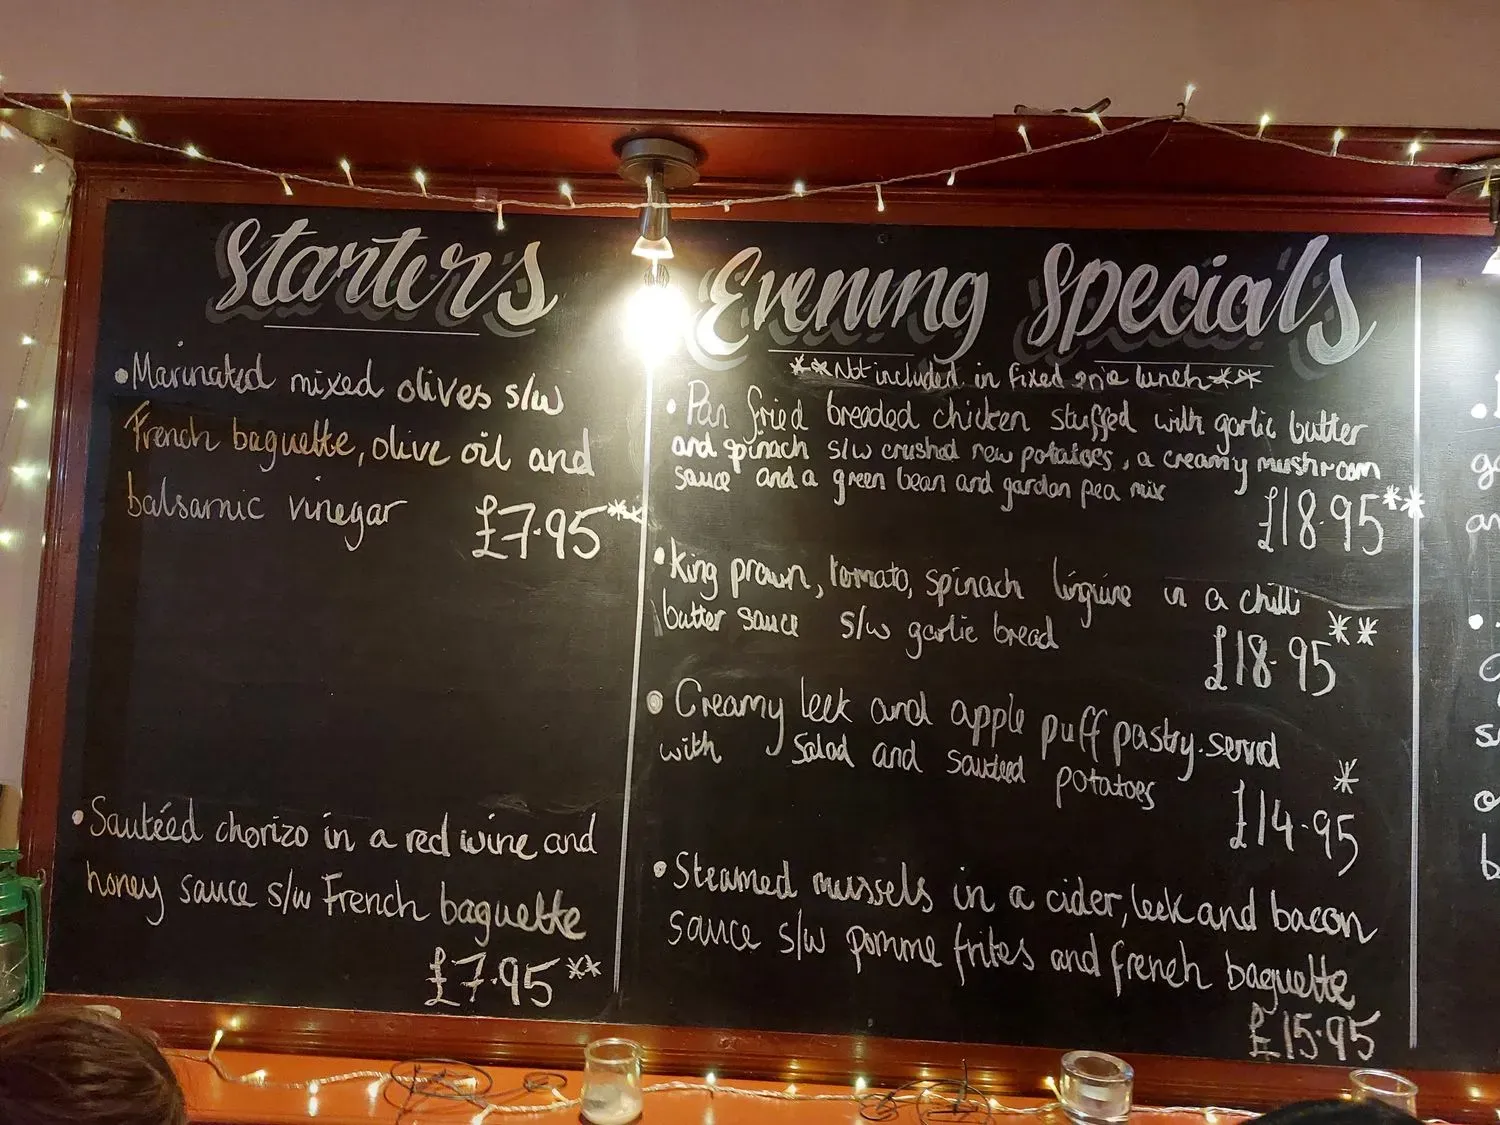 Starters
•Marinated mixed olives s/w
French baguette, olive oil and
balsamic vinegar £7.95**
•Sautéed chorizo in a red wine and
honey sauce s/w French baguette
£7.95**
Evening Specials
**Not included in fixed lunch**
•Pan fried breaded chicken stuffed with garlic butter
and spinach s/w crushed new potatoes, a creamy mushroom
sauce and a green bean and garden pea mix
£18.95**
•King prawn, tomato, spinach linguine in a chilli
butter sauce s/w garlic bread
£18.95**
•Creamy leek and apple puff pastry. served
with salad and sauteed potatoes
£14.95*
•Steamed mussels in a cider, leek and bacon
sauce s/w pomme frites and french baguette
£15.95